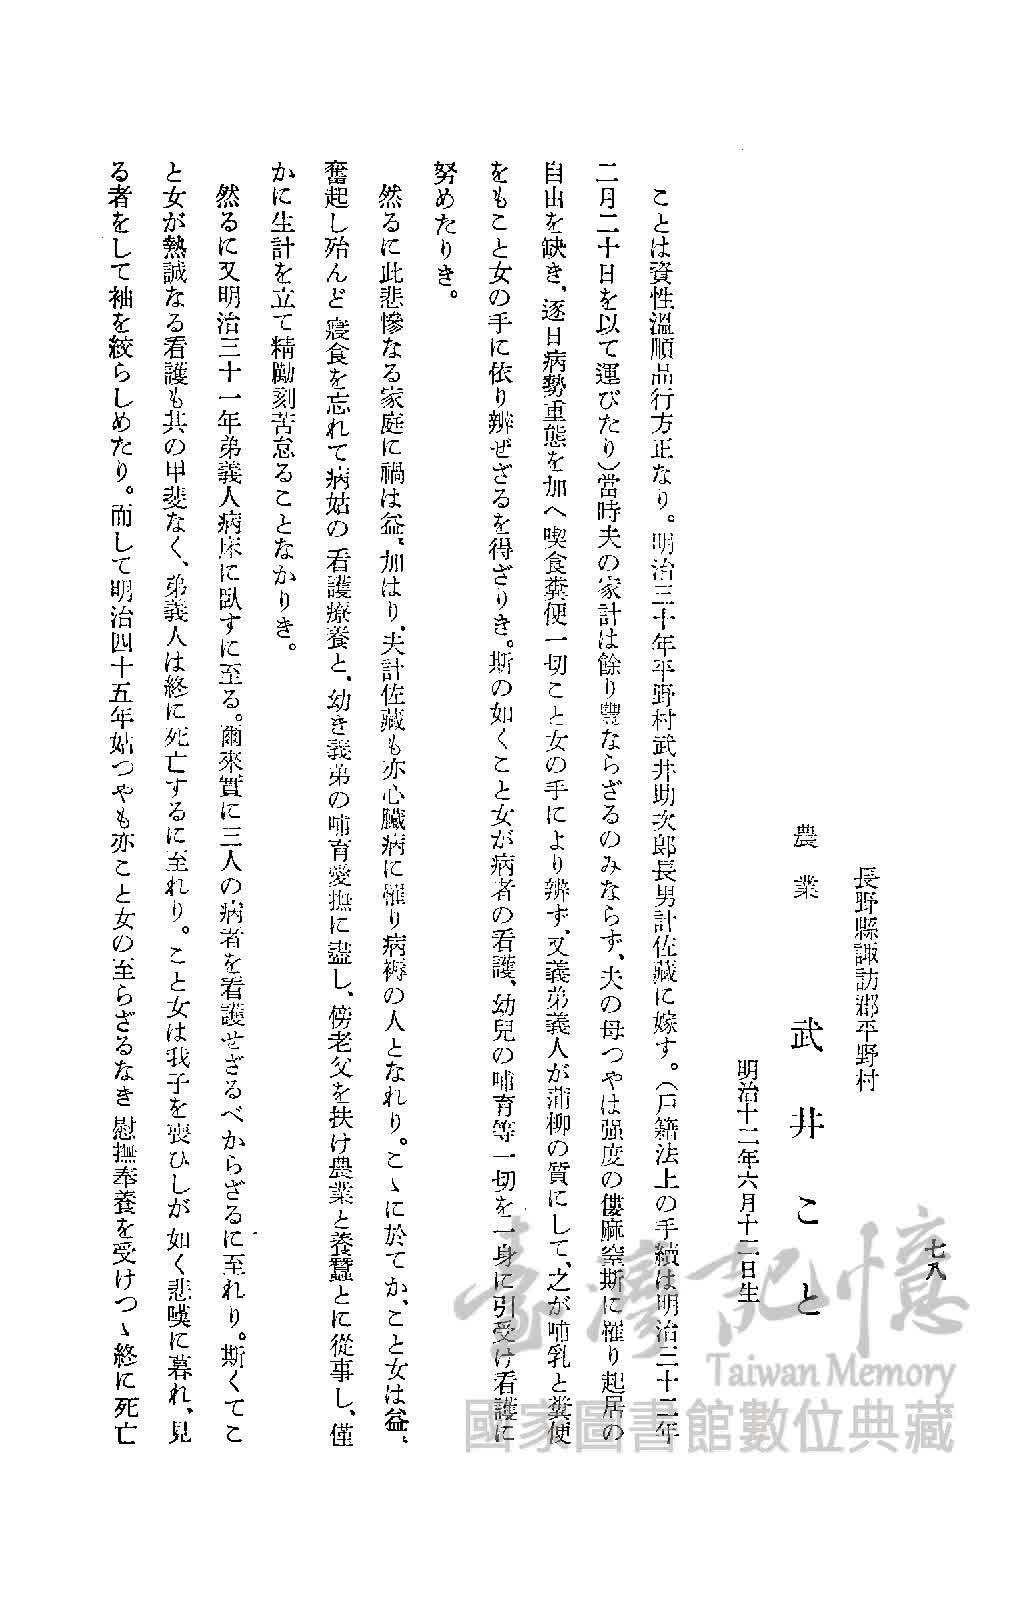 七八
長野縣諏訪郡平野村
農業　武井こと
明治十二年六月十二日生
ことは資性溫順品行方正なり。明治三十年平野村武井助次郎長男計佐藏に嫁す。(戶籍法上の手續は明治三十二年
二月二十日を以て運びたり)當時夫の家計は餘り豐ならざるのみならず、夫の母つやは强度の僂麻窒斯に罹り起居の
自由を缺き、逐日病勢重態を加へ喫食糞便一切こと女の手により辨ず、又義弟義人が蒲柳の質にして、之が哺乳と糞便
をもこと女の手に依り辨ぜざるを得ざりき。斯の如くこと女が病者の看護、幼兒の哺育等一切を一身に引受け看護に
努めたりき。
然るに此悲慘なる家庭に禍は益〻加はり、夫計佐藏も亦心臟病に罹り病褥の人となれり。こゝに於てか、こと女は益〻
奮起し殆んど寢食を忘れて病姑の看護療養と、幼き義弟の哺育愛撫に盡し、傍老父を扶け農業と養蠶とに從事し、僅
かに生計を立て精勵刻苦怠ることなかりき。
然るに又明治三十一年弟義人病床に臥すに至る。爾來實に三人の病者を看護せざるべからざるに至れり。斯くてこ
と女が熱誠なる看護も其の甲斐なく、弟義人は終に死亡するに至れり。こと女は我子を喪ひしが如く悲嘆に暮れ、見
る者をして袖を絞らしめたり。而して明治四十五年姑つやも亦こと女の至らざるなき慰撫奉養を受けつゝ終に死亡
臺灣記憶
Taiwan Memory
國家圖書館數位典藏